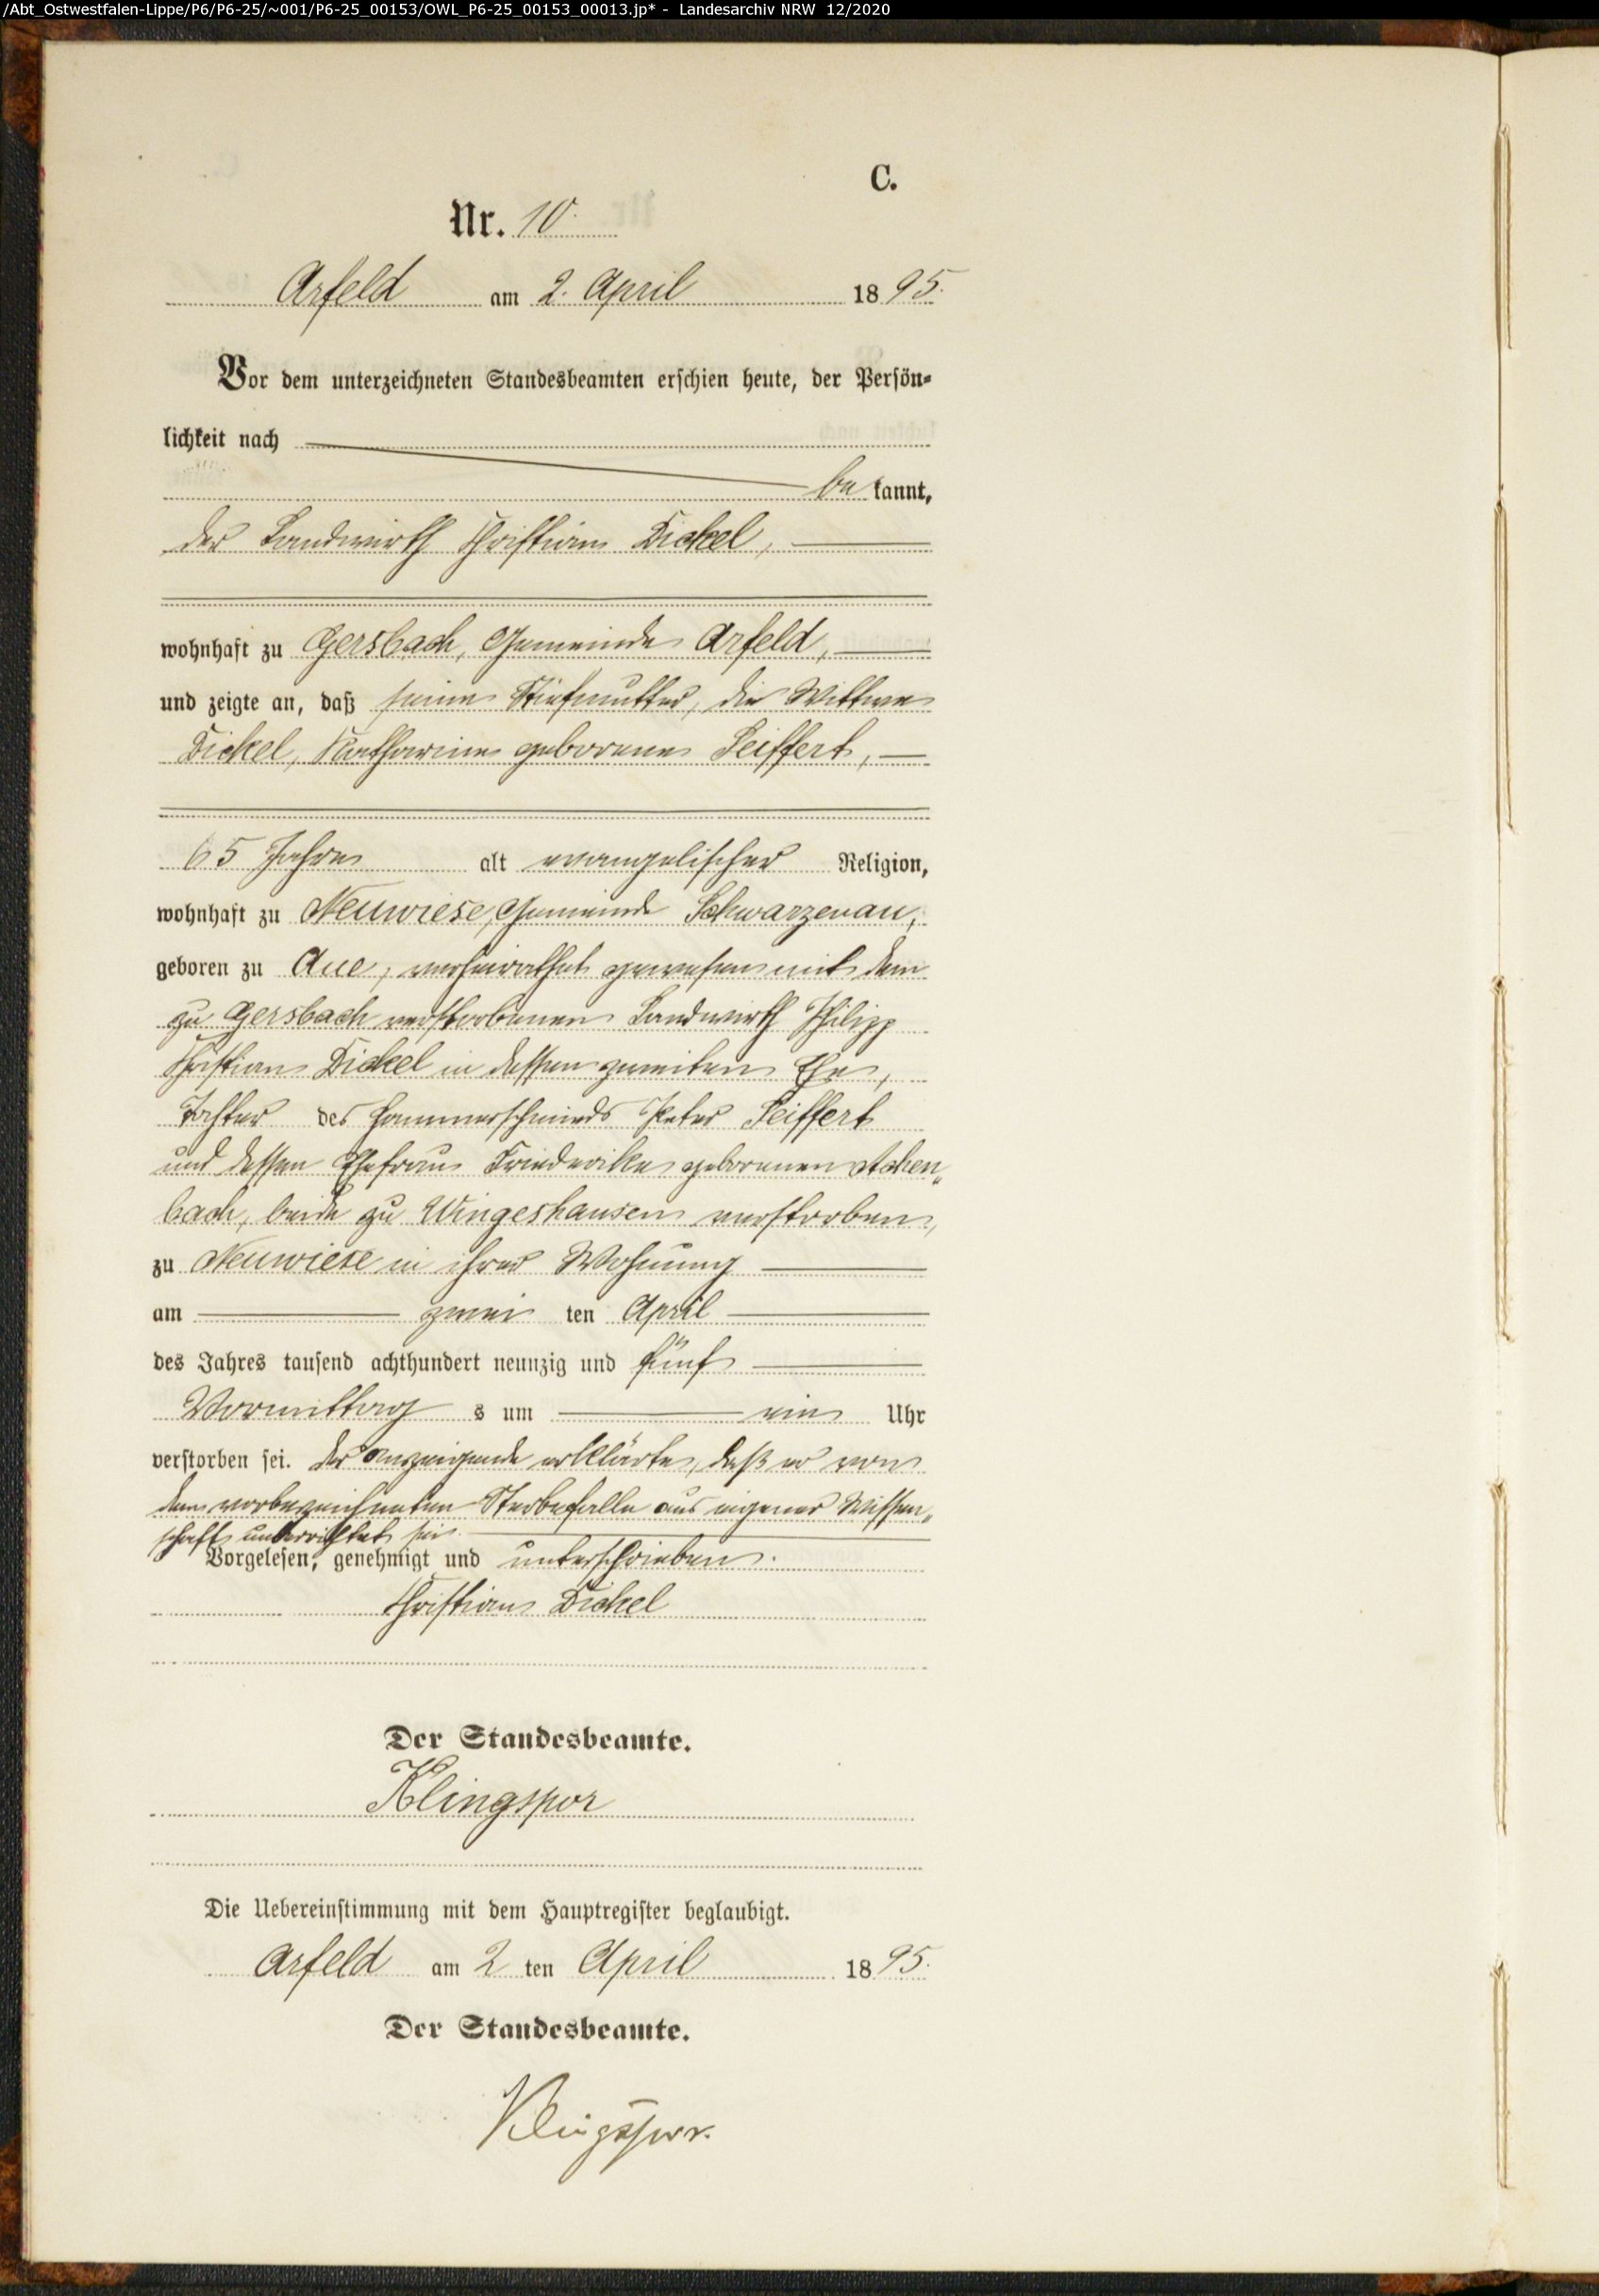 /Abt_Ostwestfalen-Lippe/P6/P6-25/~001/P6-25_00153/OWL_P6-25_00153_00013.jp* - Landesarchiv NRW 12/2020
C.
Nr. 10.
Arfeld am 2. April 1895.
Vor dem unterzeichneten Standesbeamten erschien heute, der Persön-
lichkeit nach
bekannt,
der Landwirth Christian Dickel,
wohnhaft zu Gersbach, Gemeinde Arfeld,
und zeigte an, daß seine Stiefmutter, die Wittwe
Dickel, Katharine geborene Seiffert,
65 Jahre alt evangelischer Religion,
wohnhaft zu Neuwiese, Gemeinde Schwarzenau,
geboren zu Aue, verheirathet gewesen mit dem
zu Gersbach verstorbenen Landwirth Philipp
Christian Dickel in dessen zweiten Ehe,
Tochter des Hammerschmieds Peter Seiffert
und dessen Ehefrau Friederike geborenen Achen-
bach, beide zu Wingeshausen verstorben,
zu Neuwiese in ihrer Wohnung
am zwei ten April
des Jahres tausend achthundert neunzig und fünf
Vormittag s um ein Uhr
verstorben sei. Der Anzeigende erklärte, daß er von
dem vorbezeichneten Sterbefalle aus eigener Wissen-
schaft unterrichtet sei.
Vorgelesen, genehmigt und unterschrieben.
Christian Dickel
Der Standesbeamte.
Klingspor
Die Uebereinstimmung mit dem Hauptregister beglaubigt.
Arfeld am 2 ten April 1895.
Der Standesbeamte.
Klingspor.